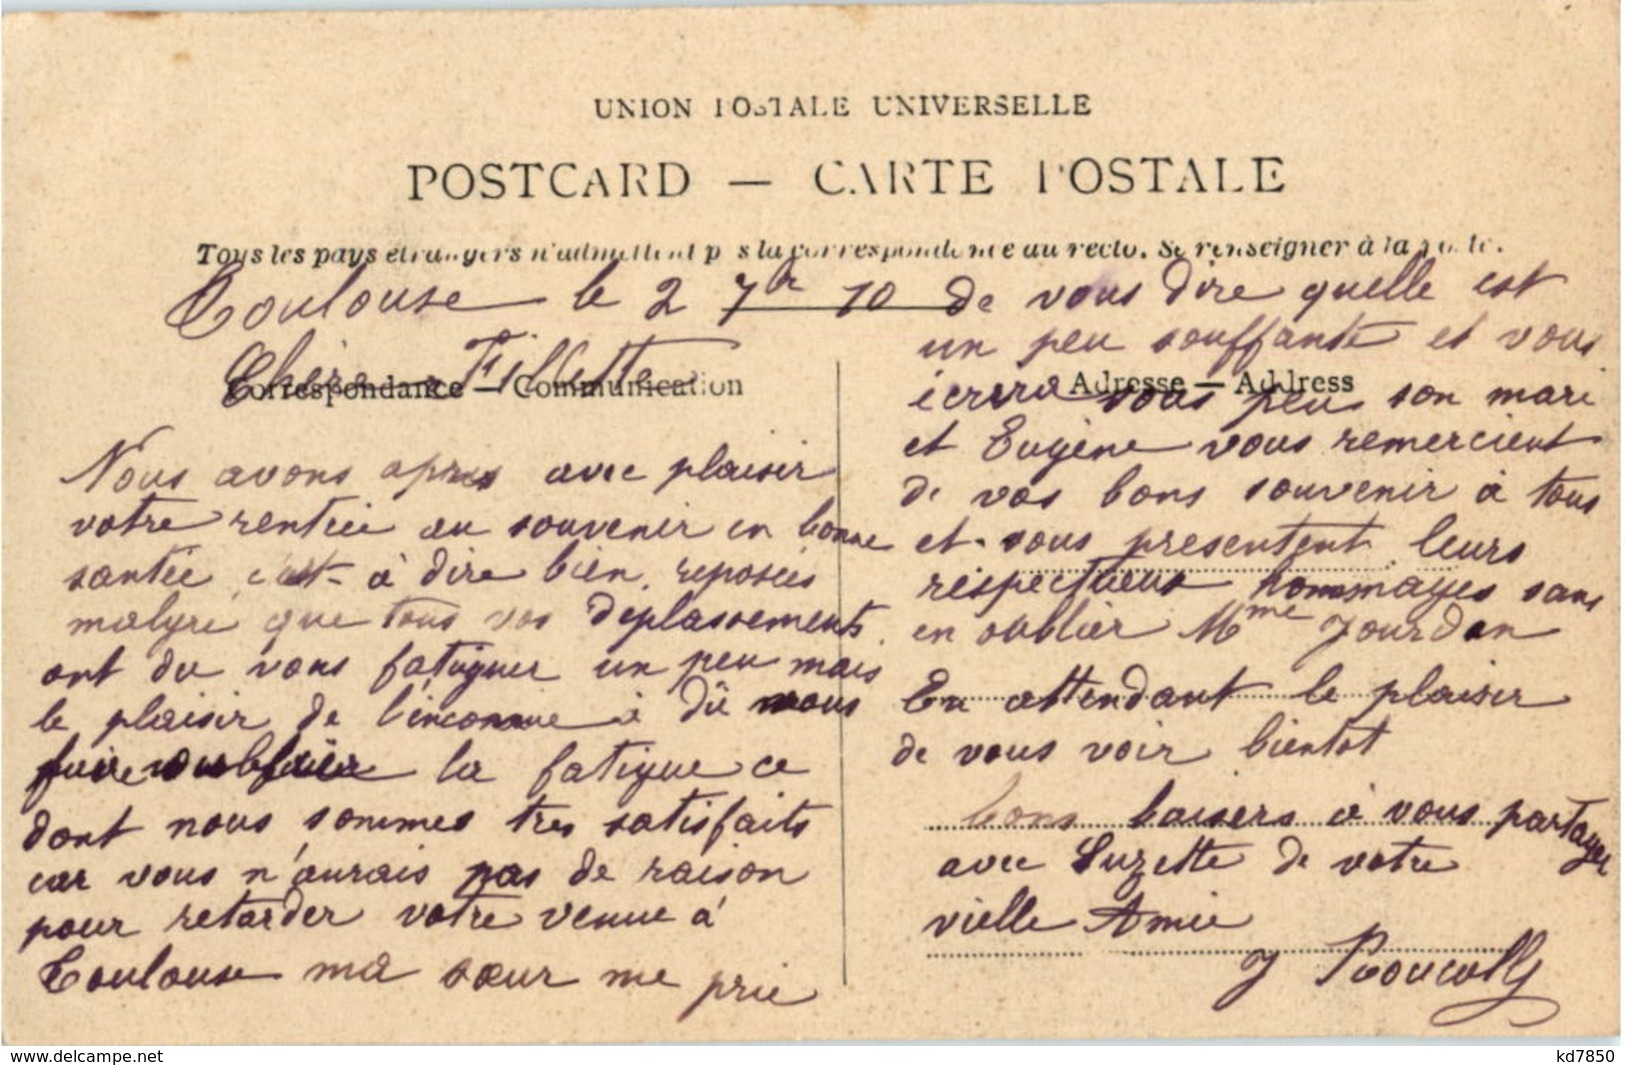 UNION POSTALE UNIVERSELLE
POSTCARD — CARTE POSTALE
Tous les pays étrangers n'admettent pas la correspondance au recto. Se renseigner à la poste.
Correspondance — Communication
Adresse — Address
Toulouse le 2 7br 10
Chère Fillette
Nous avons apris avec plaisir
votre rentrée au souvenir en bonne
santée c'est à dire bien reposées
malgré que tous vos déplassements
ont du vous fatiguer un peu mais
le plaisir de l'inconnue à dû vous
faire oublier la fatigue ce
dont nous sommes tres satisfaits
car vous n'aurais pas de raison
pour retarder votre venue à
Toulouse ma sœur me prie
de vous dire quelle est
un peu souffante et vous
écrira sous peu son mari
et Eugène vous remercient
de vos bons souvenir à tous
et vous presentent leurs
réspectueux hommages sans
en oublier Mme Jourdan
En attendant le plaisir
de vous voir bientot
bons baisers à vous partager
avec Suzette de votre
vielle Amie
J
www.delcampe.net
kd7850